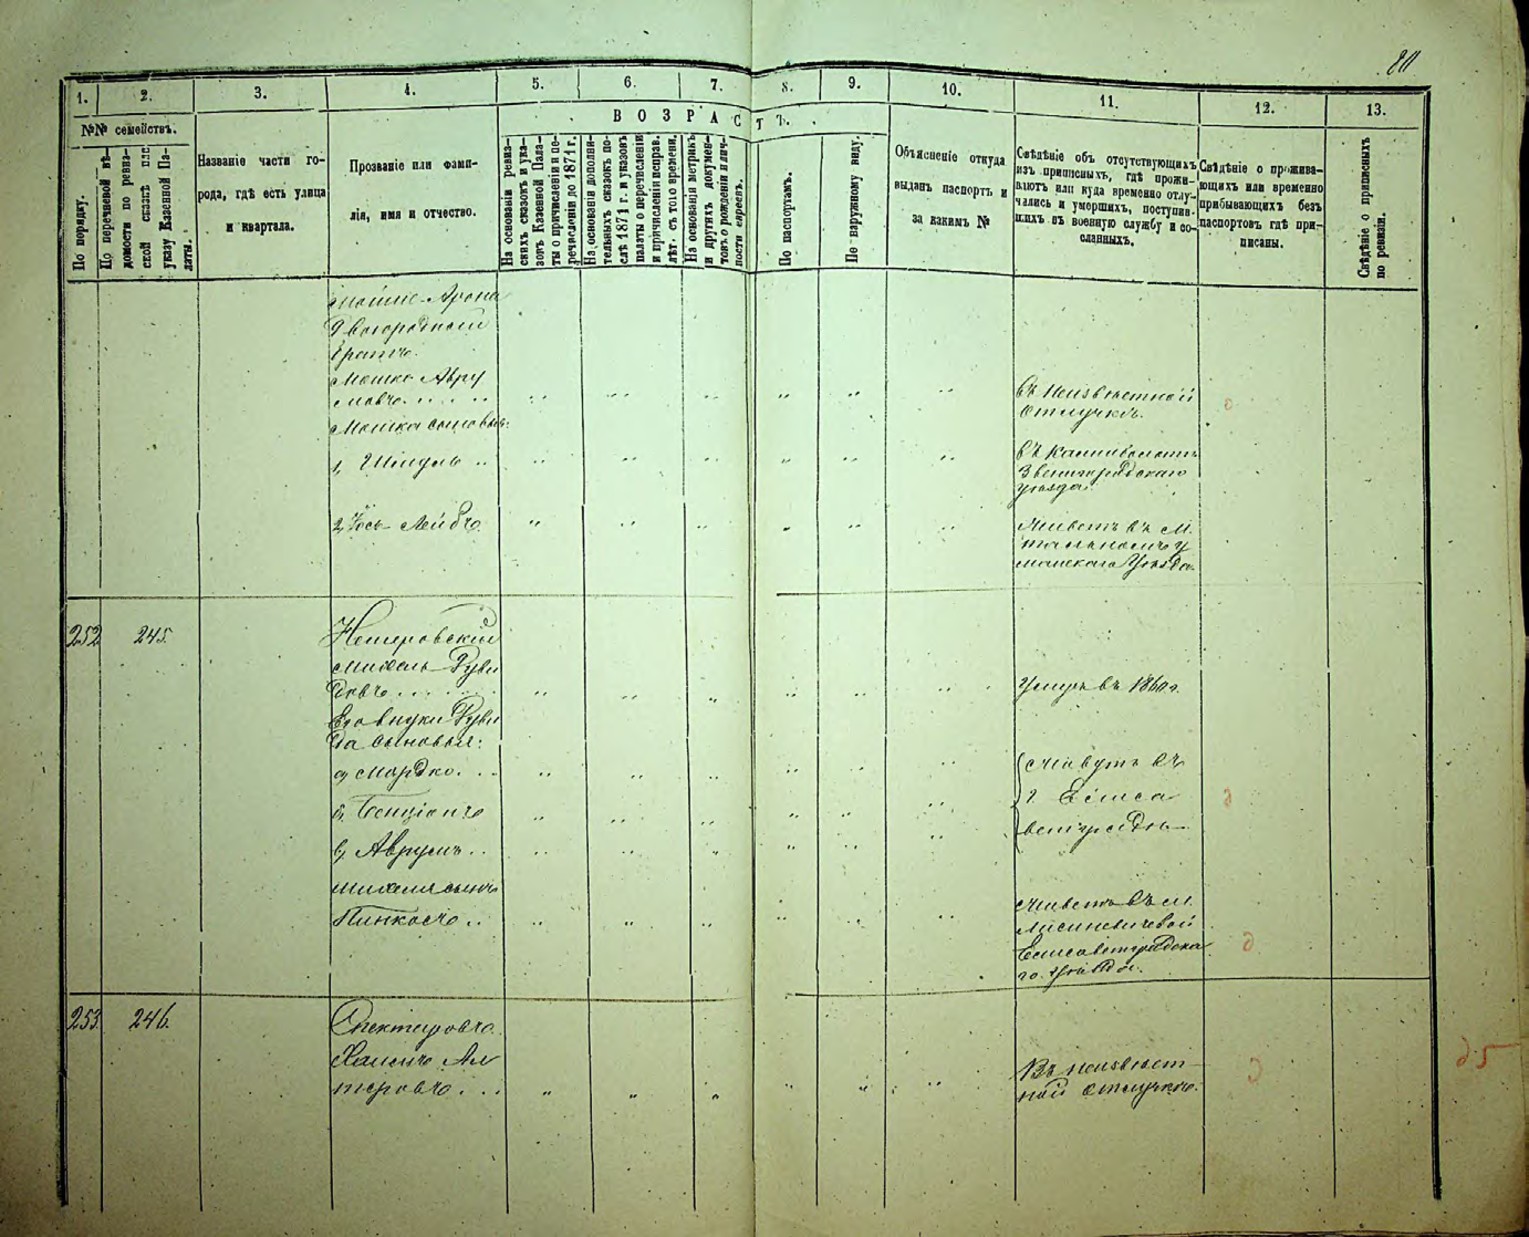 80
1. 2. 3. 4. 5. 6. 7. 8. 9. 10. 11. 12. 13.
№№ семействъ.
ВОЗРАСТЪ.
По порядку.
По перечневой вѣ-
домости по ревиз-
ской сказкѣ или
указу Казенной Па-
латы.
Названіе части го-
рода, гдѣ есть улица
и квартала.
Прозваніе или фами-
лія, имя и отчество.
На основаніи ревиз-
скихъ сказокъ и ука-
зовъ Казенной Пала-
ты о причисленіи и пе-
речисленіи до 1871 г.
На основаніи дополни-
тельныхъ сказокъ по-
слѣ 1871 г. и указовъ
палаты о перечисленіи
и причисленіи исправ.
лѣт. съ того времени.
На основанія метрикъ
и другихъ докумен-
товъ о рожденіи и лич-
ности евреевъ.
По паспортамъ.
По наружному виду.
Объясненіе откуда
выданъ паспортъ и
за какимъ №
Свѣдѣніе объ отсутствующихъ
изъ приписныхъ, гдѣ прожи-
ваютъ или куда временно отлу-
чались и умершихъ, поступив-
шихъ въ военную службу и со-
сланныхъ.
Свѣдѣніе о прожива-
ющихъ или временно
прибывающихъ безъ
паспортовъ гдѣ при-
писаны.
Свѣдѣніе о приписныхъ
по ревизіи.
Мошие-Арона
Двогородный
братъ
Мошко Авру
мовъ
въ неизвѣстной
отлучкѣ.
Мошка сыновья:
1, Шмуль
въ
Звенигородскаго
уѣзда.
2, Іось-Лейбъ
Живетъ въ м.
Тальномъ У
манскаго Уѣзда
252 245.
Михель-Руви
новъ
Умеръ въ 1860 г.
Его внуки Руви
на сыновья:
а, Мордко
б, Бенціонъ
в, Аврумъ
Живутъ въ
г Елиса
ветградѣ
Михеля сынъ
Пинкосъ
Живетъ въ м.
Елисаветградска
го уѣзда.
253 246.
Хаимъ Ал
теровъ
Въ неизвѣст
ной отлучкѣ.